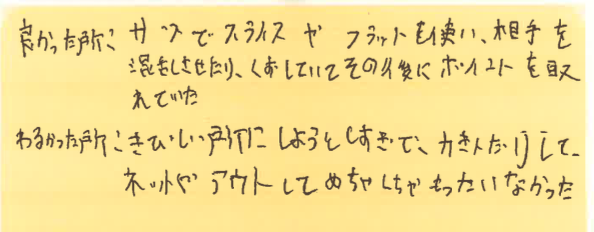 良かった所：サーブでスライスやフラットを使い、相手を
混乱させたり、くずしていてその後にポイントを取
れていた
わるかった所：きびしい所にしようとしすぎで、力きんだりして、
ネットやアウトしてめちゃくちゃもったいなかった